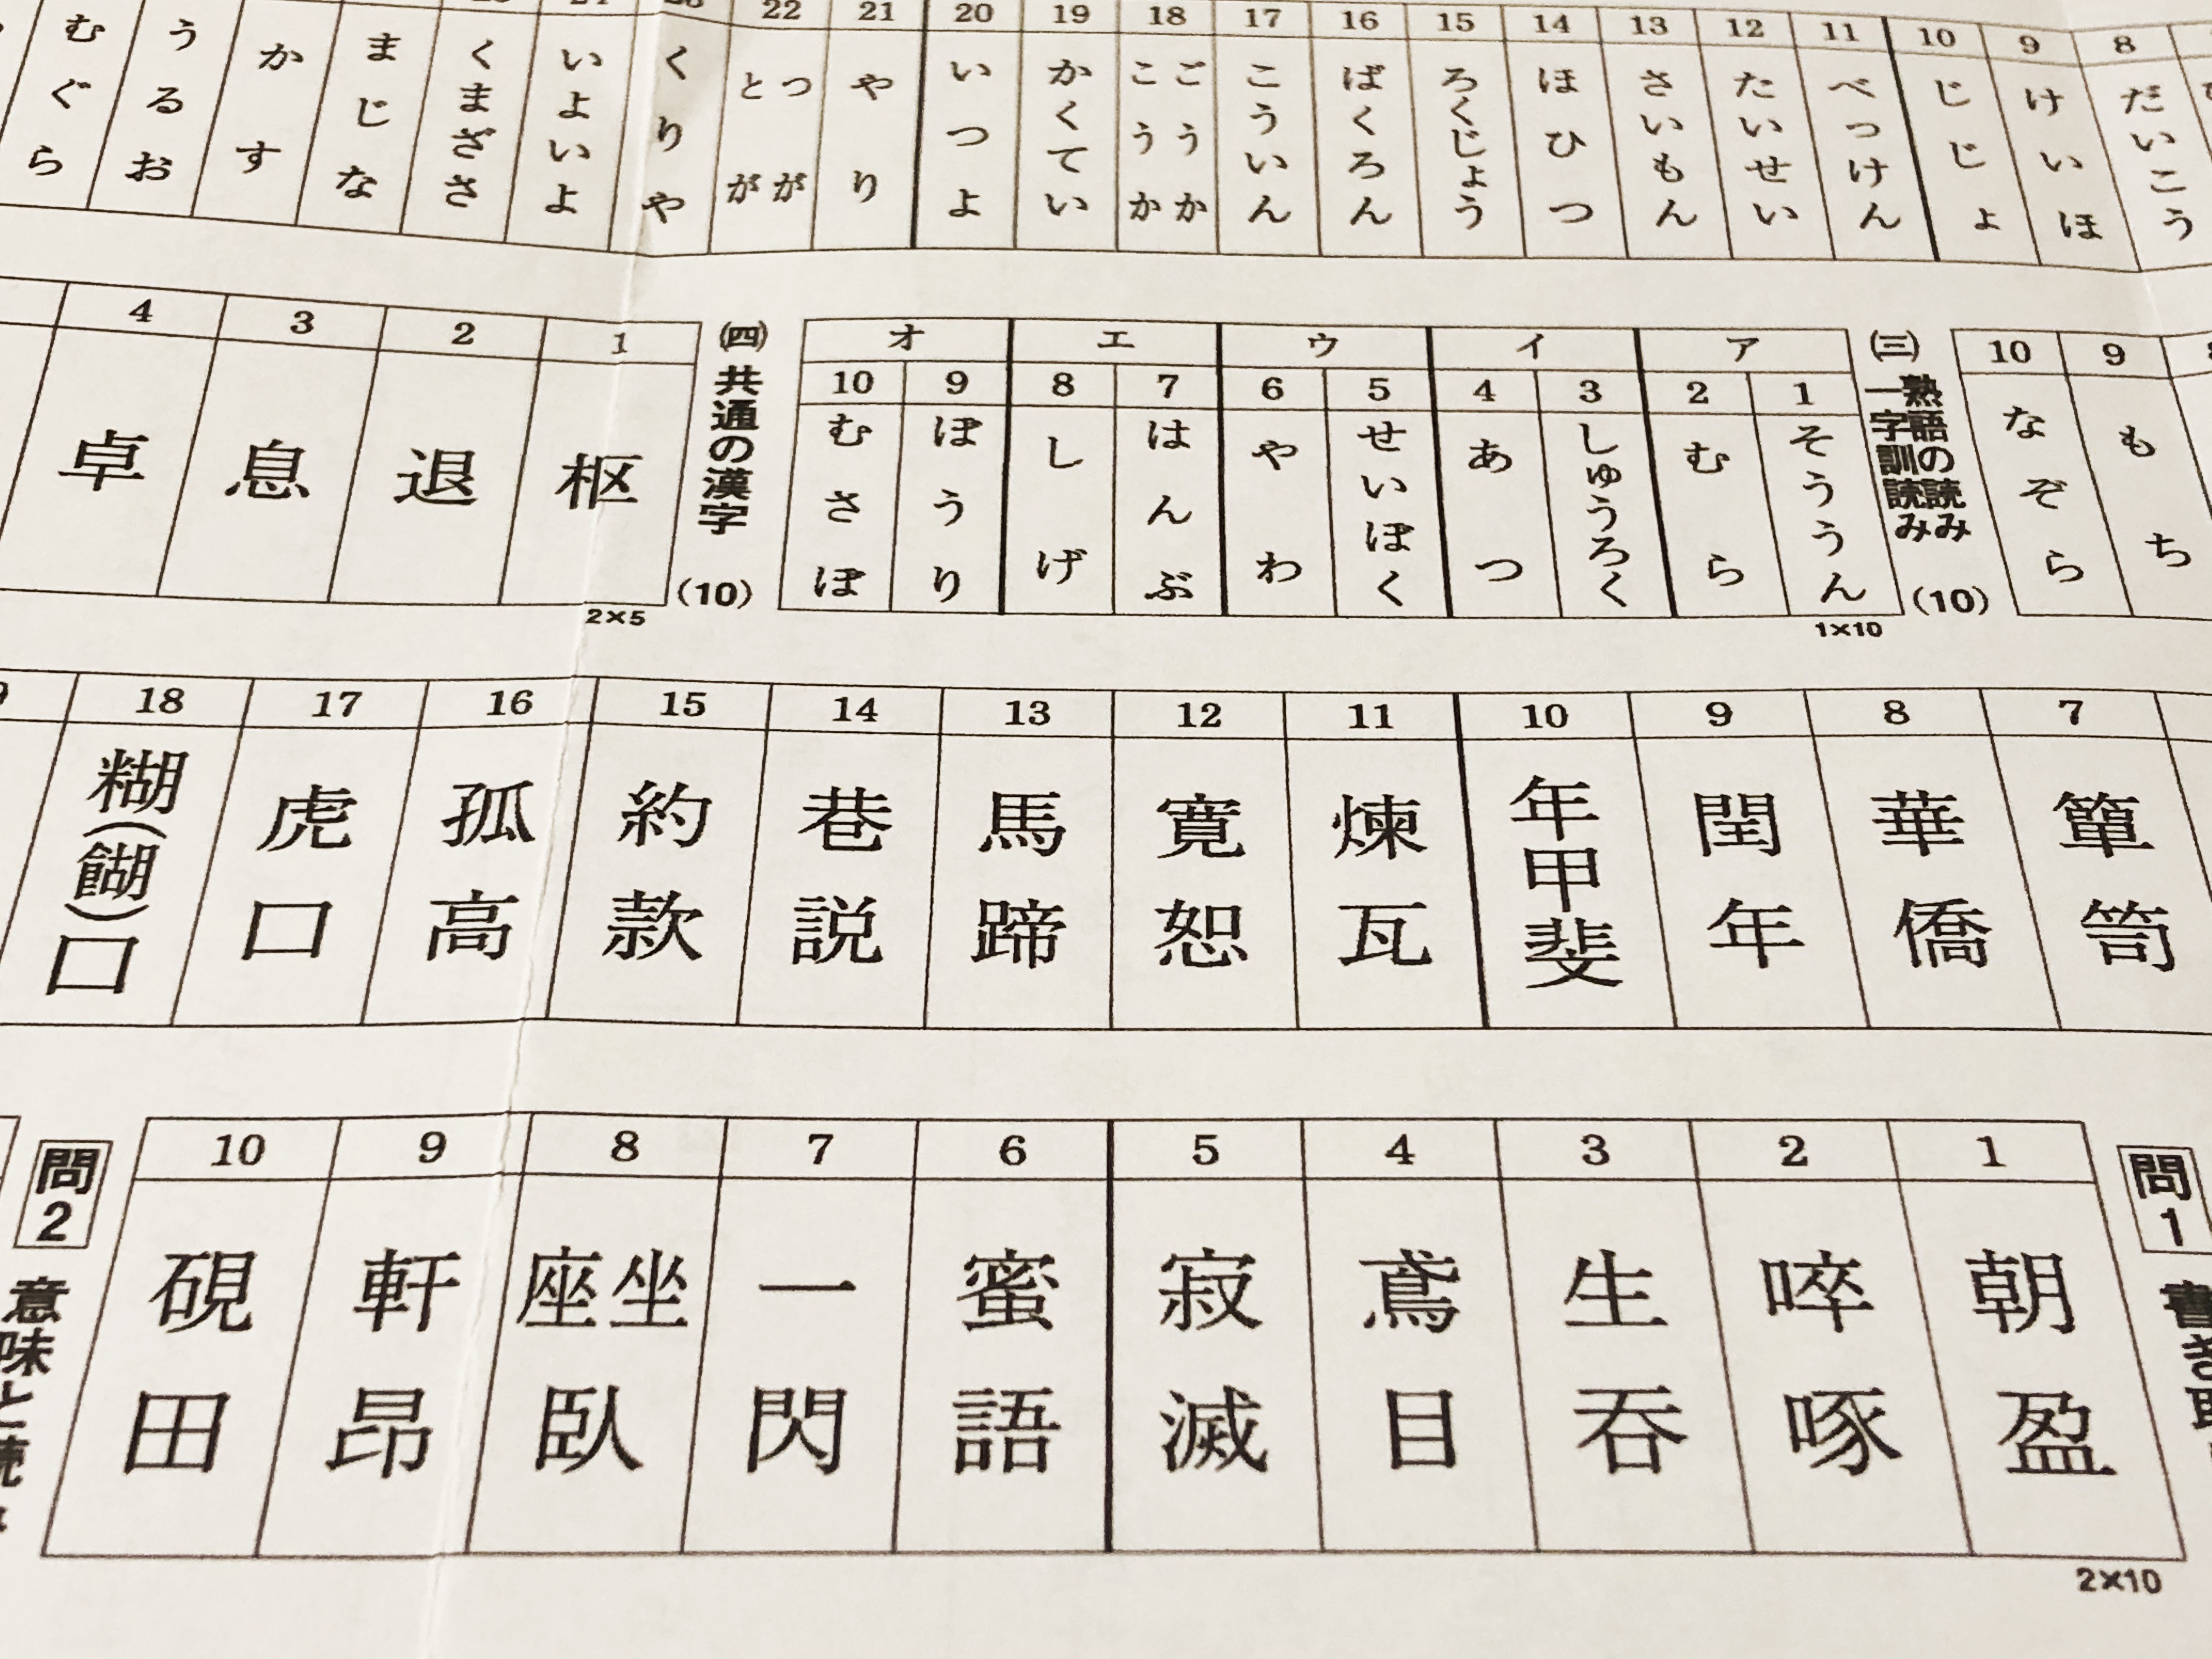 8 だいこう
9 けいほ
10 じじょ
11 べっけん
12 たいせい
13 さいもん
14 ほひつ
15 ろくじょう
16 ばくろん
17 こういん
18 ごうか こうか
19 かくてい
20 いつよ
21 やり
22 つが とが
くりや
いよいよ
くまざさ
まじな
かす
うるお
むぐら
9 もち
10 なぞら
㈢ 熟語の読み 一字訓読み (10)
ア
1 そううん
2 むら
イ
3 しゅうろく
4 あつ
ウ
5 せいぼく
6 やわ
エ
7 はんぶ
8 しげ
オ
9 ぼうり
10 むさぼ
1×10
㈣ 共通の漢字 (10)
1 枢
2 退
3 息
4 卓
2×5
7 簞笥
8 華僑
9 閏年
10 年甲斐
11 煉瓦
12 寛恕
13 馬蹄
14 巷説
15 約款
16 孤高
17 虎口
18 糊(餬)口
問1
1 朝盈
2 啐啄
3 生呑
4 鳶目
5 寂滅
6 蜜語
7 一閃
8 坐座臥
9 軒昂
10 硯田
2×10
問2 意味と読